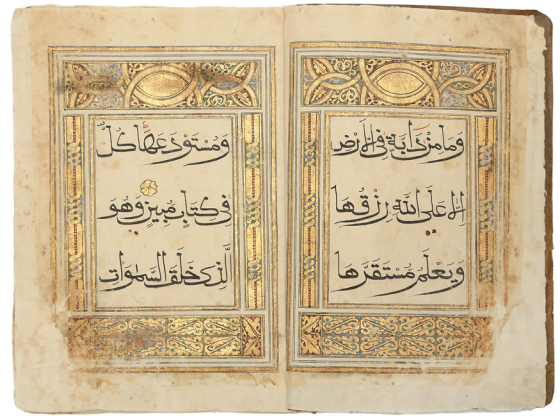 وَمَا مِنْ دَابَّةٍ فِي الْأَرْضِ
إِلَّا عَلَى اللَّهِ رِزْقُهَا
وَيَعْلَمُ مُسْتَقَرَّهَا
وَمُسْتَوْدَعَهَا كُلٌّ
فِي كِتَابٍ مُبِينٍ وَهُوَ
الَّذِي خَلَقَ السَّمَوَاتِ